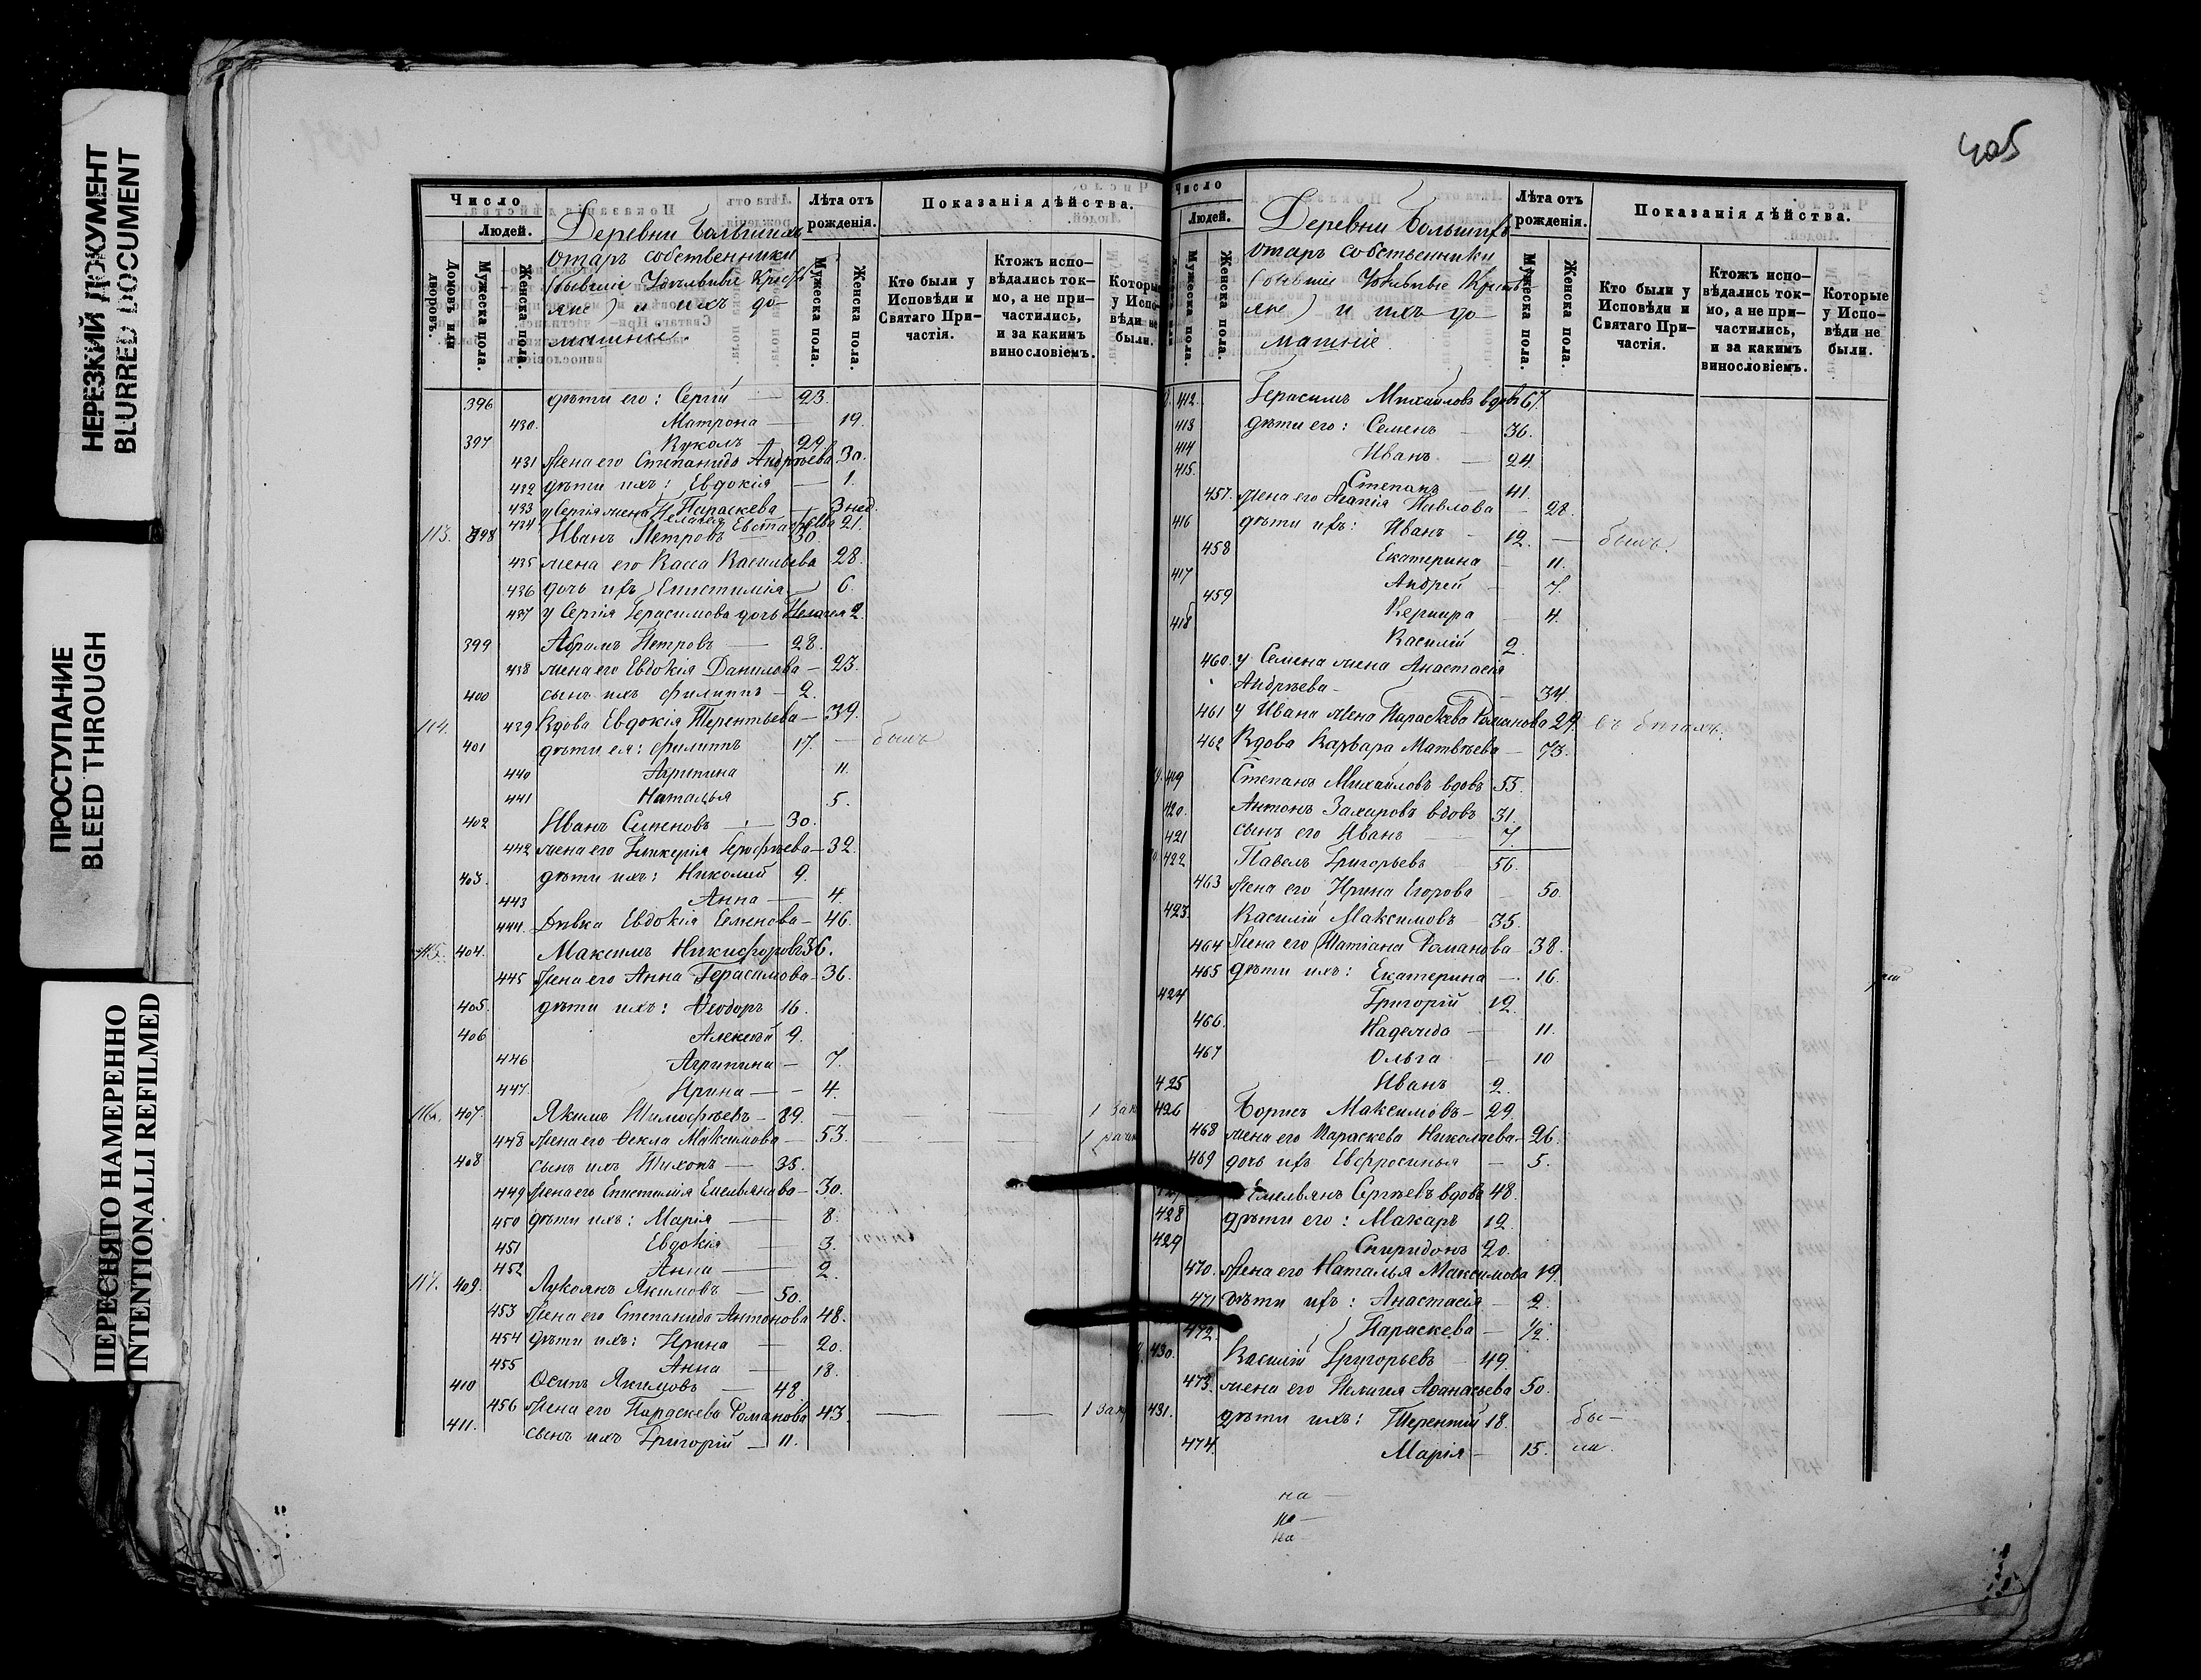 НЕРЕЗКИЙ ДОКУМЕНТ
BLURRED DOCUMENT
ПРОСТУПАНИЕ
BLEED THROUGH
ПЕРЕСНЯТО НАМЕРЕННО
INTENTIONALLI REFILMED
Число
Людей.
Домовъ или дворовъ.
Мужеска пола.
Женска пола.
Деревни Большихъ
Отаръ собственники
(бывшіе Крестья
яне) и ихъ до-
машніе.
Лѣта отъ рожденія.
Мужеска пола.
Женска пола.
Показанія дѣйства.
Кто были у Исповѣди и Святаго При-частія.
Ктожъ испо-вѣдались ток-мо, а не при-частились, и за какимъ винословіемъ.
Которые у Испо-вѣди не были.
396 дѣти его: Сергій — 23.
430. Матрона — 19.
397 — 29
431 жена его Степанида Андреева 30.
432 дѣти ихъ: Евдокія — 1.
433 Параскева — 3 нед.
434 у Сергія жена Пелагея 21.
113. 398 Иванъ Петровъ — 30.
435 жена его Васса Васильева 28.
436 дочь ихъ Епистимія 6.
437 у Сергія Герасимова дочь Пелагея 2.
399 Абрамъ Петровъ — 28.
438 жена его Евдокія Данилова — 23.
400 сынъ ихъ Филиппъ — 2.
114. 439 Вдова Евдокія Терентьева — 39.
401 дѣти ея: Филиппъ 17. — былъ
440 Агрипина 11.
441 Наталья 5.
402 Иванъ Семеновъ — 30.
442 жена его Гликерія — 32.
403. дѣти ихъ: Николай 9.
443 Анна — 4.
444. Дѣвка Евдокія Семенова — 46.
115. 404. Максимъ Никифоровъ 36.
445 Жена его Анна Герасимова — 36.
405. дѣти ихъ: Ѳеодоръ 16.
406 Алексѣй 9.
446 Агрипина — 7.
447 Ирина — 4.
116. 407. Якимъ Тимофѣевъ — 89. — 1
448 Жена его Ѳекла Максимова — 53. 1
408 сынъ ихъ Тихонъ — 35.
449 Жена его Епистимія Емельянова — 30.
450 дѣти ихъ: Марія — 8.
451 Евдокія — 3.
452 Анна — 2.
117. 409. Лукоянъ Якимовъ — 50.
453 Жена его Степанида Антонова 48.
454 дѣти ихъ: Ирина — 20.
455 Анна — 18.
410 Осипъ Якимовъ — 48
456 Жена его Параскева Романова 43. — — 1
411. сынъ ихъ Григорій — 11.
405
Число
Людей.
Мужеска пола.
Женска пола.
Деревни Большихъ
Отаръ собственники
(бывшіе Кресть-
яне) и ихъ до-
машніе.
Лѣта отъ рожденія.
Мужеска пола.
Женска пола.
Показанія дѣйства.
Кто были у Исповѣди и Святаго При-частія.
Ктожъ испо-вѣдались ток-мо, а не при-частились, и за какимъ винословіемъ.
Которые у Испо-вѣди не были.
412. Герасимъ Михайловъ вдовъ 67.
413 дѣти его: Семенъ — 36.
414 Иванъ — 24.
415. Степанъ — 41.
457. жена его Агапія Павлова — 28.
416 дѣти ихъ: Иванъ — 12. — былъ.
458 Екатерина — 11.
417 Андрей — 7.
459 4.
418 Василій 2.
460. у Семена жена Анастасія
Андрѣева — 34.
461 у Ивана жена Параскева Романова 29.
462 Вдова Варвара Матвѣева — 73.
419 Степанъ Михайловъ вдовъ 55.
420. Антонъ Захаровъ вдовъ 31.
421 сынъ его Иванъ 7.
422 Павелъ Григорьевъ 56.
463 Жена его Ирина Егорова — 50.
423. Василій Максимовъ — 35.
464 Жена его Татіана Романова 38.
465 дѣти ихъ: Екатерина — 16.
424 Григорій 12.
466. Надежда — 11.
467 Ольга — 10
425 Иванъ 2.
426 Борисъ Максимовъ — 29.
468 жена его Параскева Николаева — 26.
469 дочь ихъ Евфросинья — 5.
Емельянъ Сергѣевъ вдовъ 48.
428 дѣти его: Макаръ 12.
429 Спиридонъ 20.
470. Жена его Наталья Максимова 19.
471 дѣти ихъ: Анастасія — 2.
472. Параскева — 1/2.
430. Василій Григорьевъ — 49.
473. жена его Пелагея Аѳанасьева 50.
431. дѣти ихъ: Терентій 18. бы—
474. Марія — 15. ла.
на —
на —
на